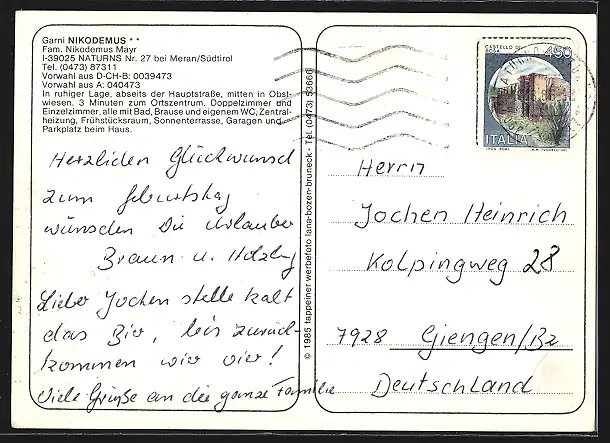 Garni NIKODEMUS **
Fam. Nikodemus Mayr
I-39025 NATURNS Nr. 27 bei Meran/Südtirol
Tel. (0473) 87311
Vorwahl aus D-CH-B: 0039473
Vorwahl aus A: 040473
In ruhiger Lage, abseits der Hauptstraße, mitten in Obst-
wiesen. 3 Minuten zum Ortszentrum. Doppelzimmer und
Einzelzimmer, alle mit Bad, Brause und eigenem WC, Zentral-
heizung, Frühstücksraum, Sonnenterrasse, Garagen und
Parkplatz beim Haus.
Herzlichen Glückwunsch
zum Geburtstag
wünschen Die Urlauber
Braun u. Holzby
Lieber Jochen stelle kalt
das Bier, bis zurück-
kommen wir vier!
Viele Grüße an die ganze Familie
© 1985 tappeiner werbefoto lana-bozen-bruneck · Tel. (0473) 53666
CASTELLO DI
450
ITALIA
I.P.Z.S. ROMA
Herrn
Jochen Heinrich
Kolpingweg 28
7928 Giengen/Bz
Deutschland